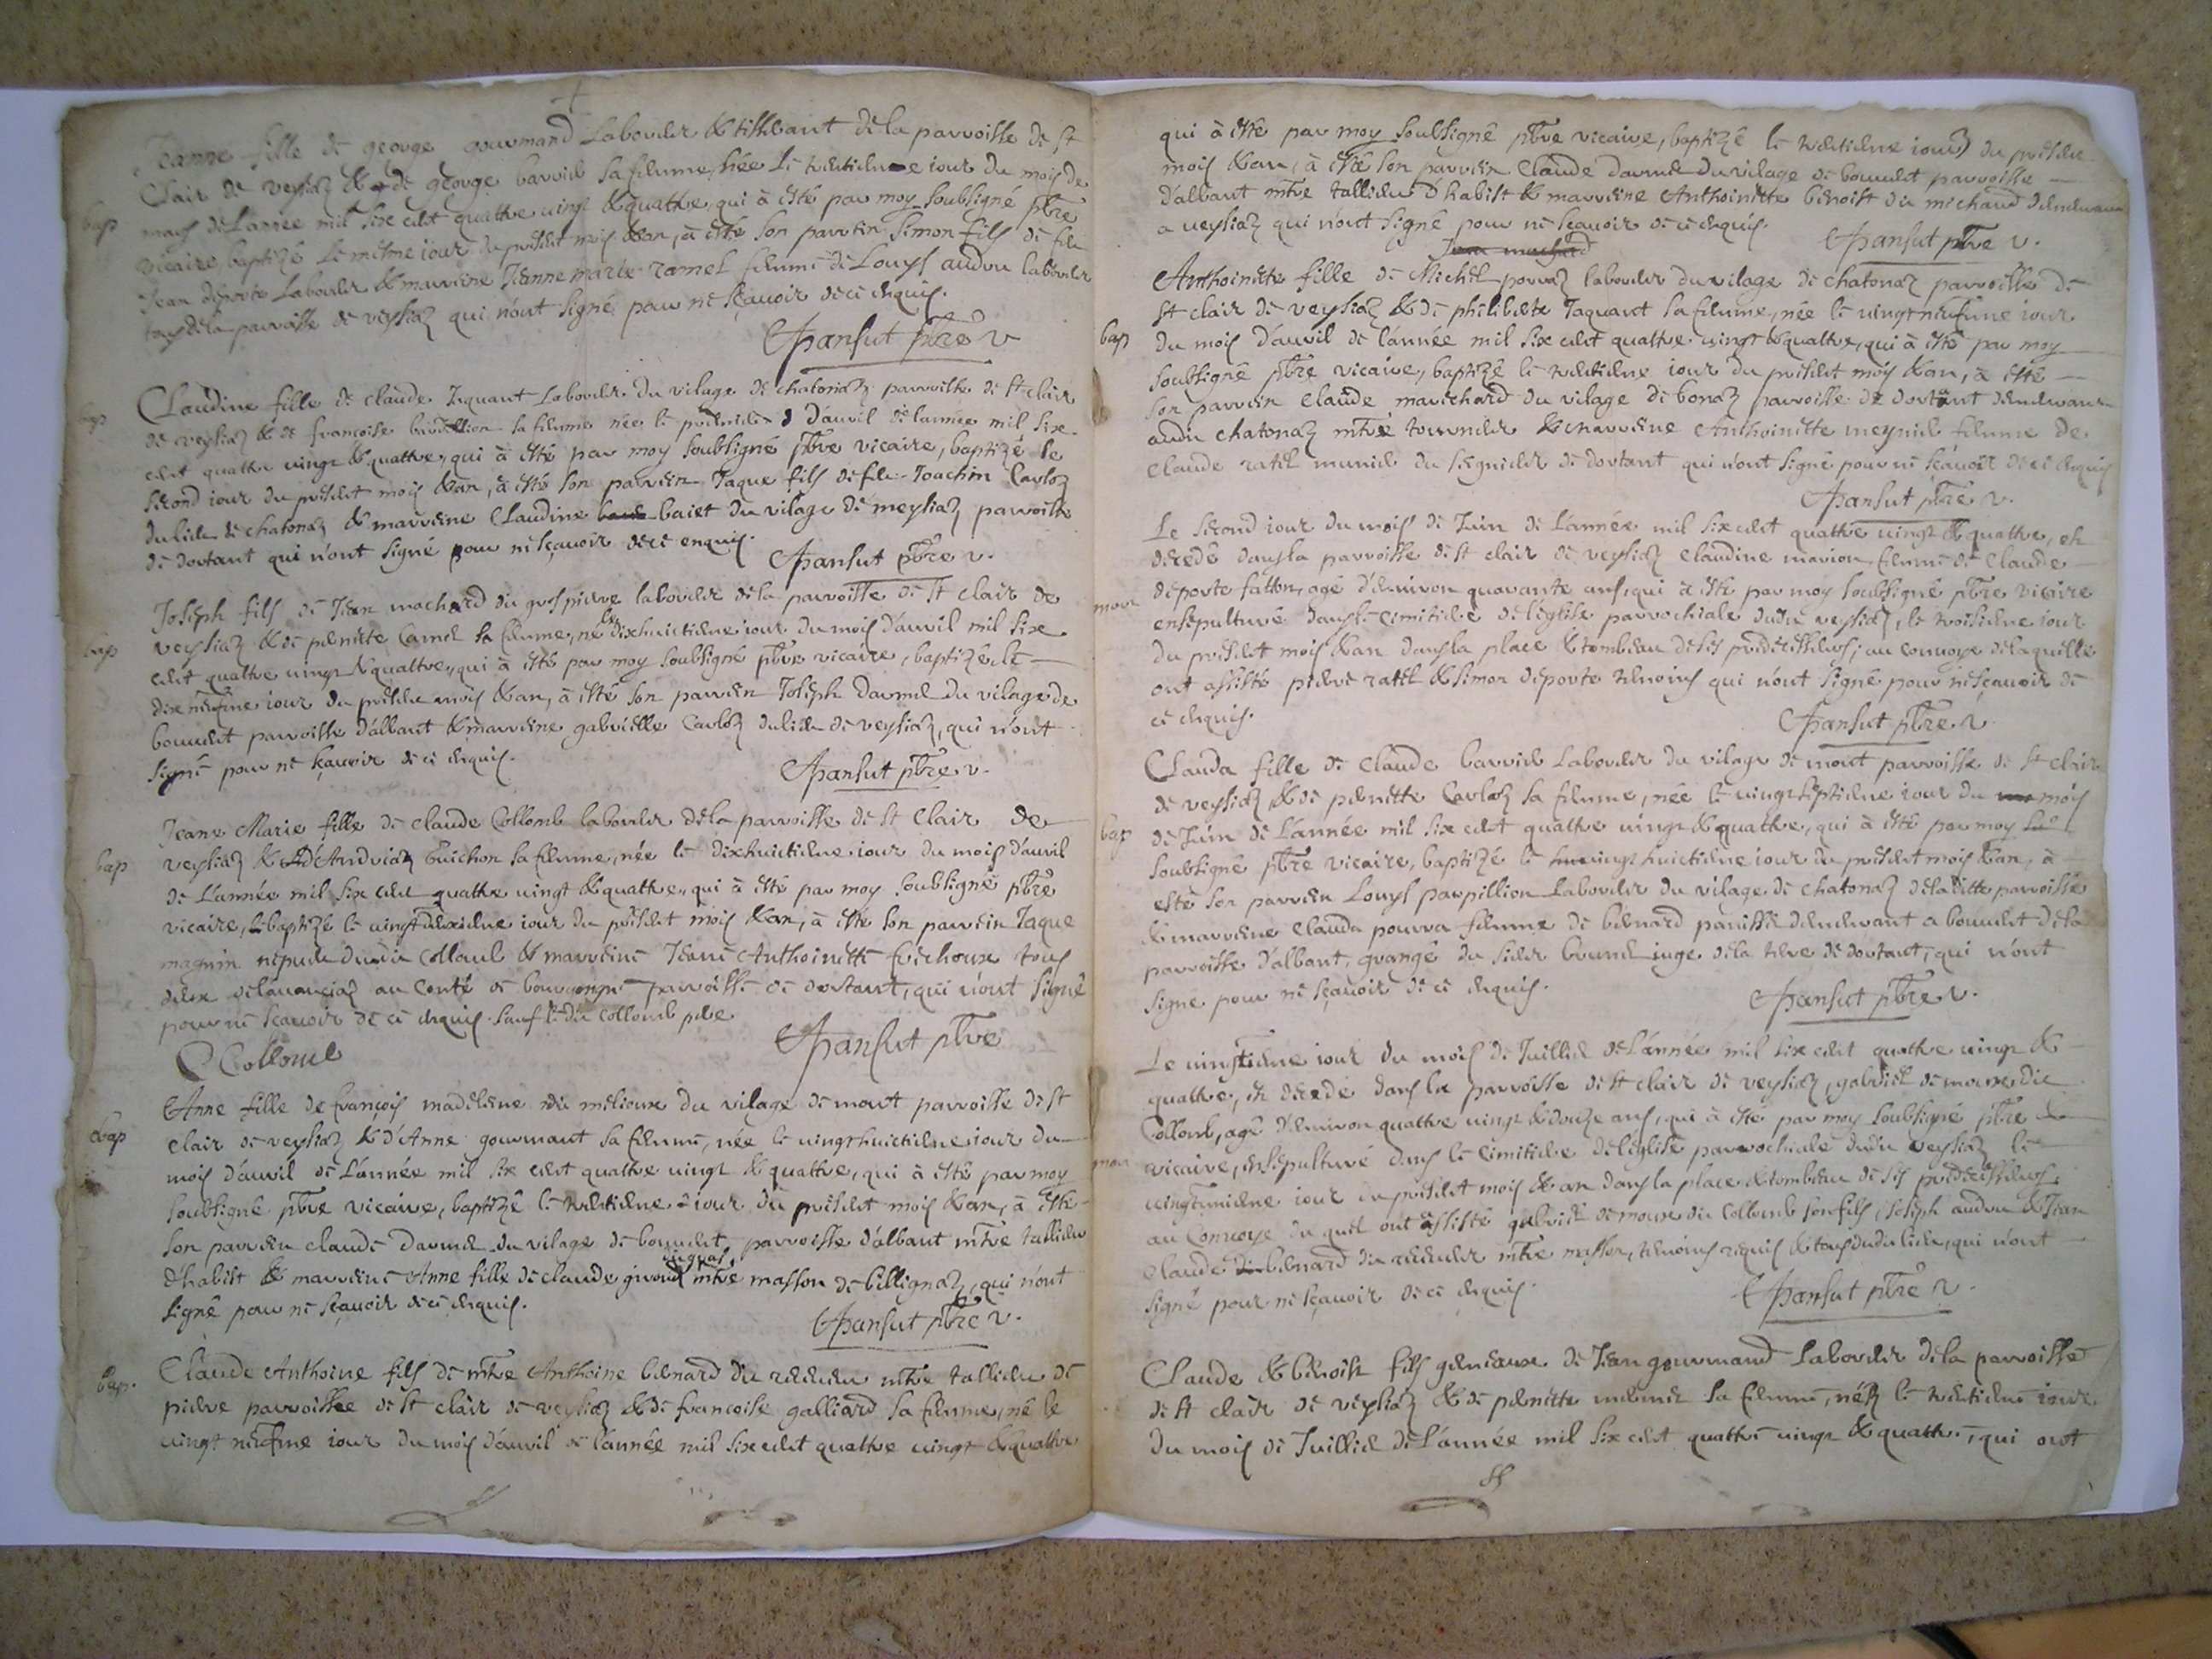 Jeanne fille de george gourmand Laboureur & tissceant de la parroisse de st
Clair de veysiaz & de george barrier sa femme, née le trentieme iour du mois de
bap
mars de L'année mil six cent quattre vingt & quattre, qui à esté par moy soubsigné pbre
vicaire baptizé le mesme iour du present mois & an, à esté son parrein Simon fils de feu
Jean deporte Laboureur & marreine Jeanne marie ramel femme de Louys audru laboureur
tous de la parroisse de veysiaz qui n'ont signé pour ne sçauoir de ce enquis.
pansut pbre v
bap
CLaudine fille de claude Jaquant Laboureur du vilage de chatonaz parroisse de st clair
de veysiaz & de francoise sa femme née le premier d'auril de lannée mil six
cent quattre vingt & quattre, qui à esté par moy soubsigné pbre vicaire, baptizé le
second iour du present mois & an, à esté son parrein Jaque fils de feu Joachin Carloz
du lieu de chatonaz & marreine Claudine baiet du vilage de meysiaz parroisse
de dortant qui n'ont signé pour ne sçauoir de ce enquis.
pansut pbre v.
Joseph fils de Jean machard dit grospierre laboureur de la parroisse de st clair de
bap
veysiaz & de pernette Carrier sa femme, né le dixhuictieme iour du mois d'auril mil six
cent quattre vingt & quattre, qui à esté par moy soubsigné pbre vicaire, baptizé le
dix neufme iour du present mois & an, à esté son parrein Joseph dauner du vilage de
bouuent parroisse d'albant & marreine gabrielle Carloz du lieu de veysiaz, qui n'ont
signé pour ne sçauoir de ce enquis.
pansut pbre v.
Jeane Marie fille de claude Collomb laboureur de la parroisse de st Clair de
bap
veysiaz & d'Andriaz Guichon sa femme, née le dixhuictieme iour du mois d'auril
de L'année mil six cent quattre vingt & quattre, qui à esté par moy soubsigné pbre
vicaire, baptizé le vingtdeuxieme iour du present mois & an, à esté son parrein Jaque
magnin nepueu dudit Collomb & marreine Jeane Anthoinette tous
deux de lauanciaz au Conté de bourgongne parroisse de dortant, qui n'ont signé
pour ne sçauoir de ce enquis. sauf le dit collomb pere
C Collomb
pansut pbre
Anne fille de françois madeleine dit melioux du vilage de mont parroisse de st
bap
clair de veysiaz & d'Anne gourmant sa femme, née le vingt huictieme iour du
mois d'auril de L'année mil six cent quattre vingt & quattre, qui à esté par moy
soubsigné pbre vicaire, baptizé le trentieme iour du present mois & an, à esté
son parrein claude dauner du vilage de bouuent parroisse d'albant mtre tallieur
d'habist & marreine Anne fille de claude giroud mtre masson de billignaz, qui n'ont
signé pour ne sçauoir de ce enquis.
pansut pbre v.
bap.
Claude Anthoine fils de mtre Anthoine bernard dit mtre tallieur de
pierre parroisse de st clair de veysiaz & de francoise galliard sa femme, né le
vingt neufme iour du mois d'auril de l'année mil six cent quattre vingt & quattre
qui à esté par moy soubsigné pbre vicaire, baptizé le trentieme iour du present
mois & an, à esté son parrein Claude dauner du vilage de bouuent parroisse
d'albant mtre tallieur d'habist & marreine Anthoinette benoist dit michaud demeurant
a veysiaz qui n'ont signé pour ne sçauoir de ce enquis.
pansut pbre v.
Anthoinette fille de Michel porraz laboureur du vilage de chatonaz parroisse de
st clair de veysiaz & de philiberte Jaquant sa femme, née le vingt neufme iour
bap
du mois d'auril de l'année mil six cent quattre vingt & quattre, qui à esté par moy
soubsigné pbre vicaire, baptizé le trentieme iour du present mois & an, à esté
son parrein claude marichard du vilage de bonaz parroisse de dortant demeurant
audit chatonaz mtre tourneur & marreine Anthoinette meynier femme de
claude ratel munier du seigneur de dortant qui n'ont signé pour ne sçauoir de ce enquis
pansut pbre v.
Le second iour du mois de Juin de L'année mil six cent quattre vingt & quattre, est
decedé dans la parroisse de st clair de veysiaz claudine marion femme de claude
mor
deporte fatton, agé d'enuiron quarante ans, qui à esté par moy soubsigné pbre vicaire
ensepulturé dans le cimitiere de leglise parrochiale dudit veysiaz, le troisieme iour
du present mois & an dans la place & tombeau de ses predecesseurs, au conuoye de laquelle
ont assisté pierre ratel & simon deporte temoins qui n'ont signé pour ne sçauoir de
ce enquis.
pansut pbre v
CLauda fille de claude barrier Laboureur du vilage de mont parroisse de st clair
de veysiaz & de pernette Carloz sa femme, née le vingt septieme iour du mois
bap
de Juin de L'année mil six cent quattre vingt & quattre, qui à esté par moy
soubsigné pbre vicaire, baptizé le vingt huictieme iour du present mois & an, à
esté son parrein Louys parpillion Laboureur du vilage de chatonaz de la ditte parroisse
& marreine clauda pourra femme de bernard panisse demeurant a bouuent de la
parroisse d'albant, grangé du sieur brunet iuge de la terre de dortant, qui n'ont
signé pour ne sçauoir de ce enquis.
pansut pbre v.
Le vingtieme iour du mois de Juillet de L'année mil six cent quattre vingt &
quattre, est decede dans la parroisse de st clair de veysiaz, gabriel demoux dit
Collomb, agé d'enuiron quattre vingt & douze ans, qui à esté par moy soubsigné pbre
mor
vicaire, ensepulturé dans le cimitiere de leglise parrochiale dudit veysiaz le
vingtunieme iour du present mois & an dans la place & tombeau de ses predecesseurs,
au Conuoye du quel ont assisté gabriel demoux dit Collomb son fils, Joseph audru & Jean
claude bernard dit mtre masson, temoins requis & tous dudit lieu, qui n'ont
signé pour ne sçauoir de ce enquis.
pansut pbre v.
CLaude & benoist fils gemeaux de Jean gourmand Laboureur de la parroisse
de st clair de veysiaz & de pernette sa femme, néz le trentieme iour
du mois de Juillet de L'année mil six cent quattre vingt & quattre, qui ont